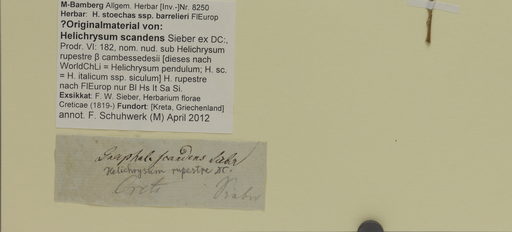 M-Bamberg Allgem. Herbar [Inv.-]Nr. 8250
Herbar: H. stoechas ssp. barrelieri FlEurop
?Originalmaterial von:
Helichrysum scandens Sieber ex DC:,
Prodr. VI: 182, nom. nud. sub Helichrysum
rupestre β cambessedesii [dieses nach
WorldChLi = Helichrysum pendulum; H. sc.
= H. italicum ssp. siculum] H. rupestre
nach FlEurop nur Bl Hs It Sa Si.
Exsikkat: F. W. Sieber, Herbarium florae
Creticae (1819-) Fundort: [Kreta, Griechenland]
annot. F. Schuhwerk (M) April 2012
Gnaphal. scandens Siebr
Helichrysum rupestre DC.
Creta Sieber